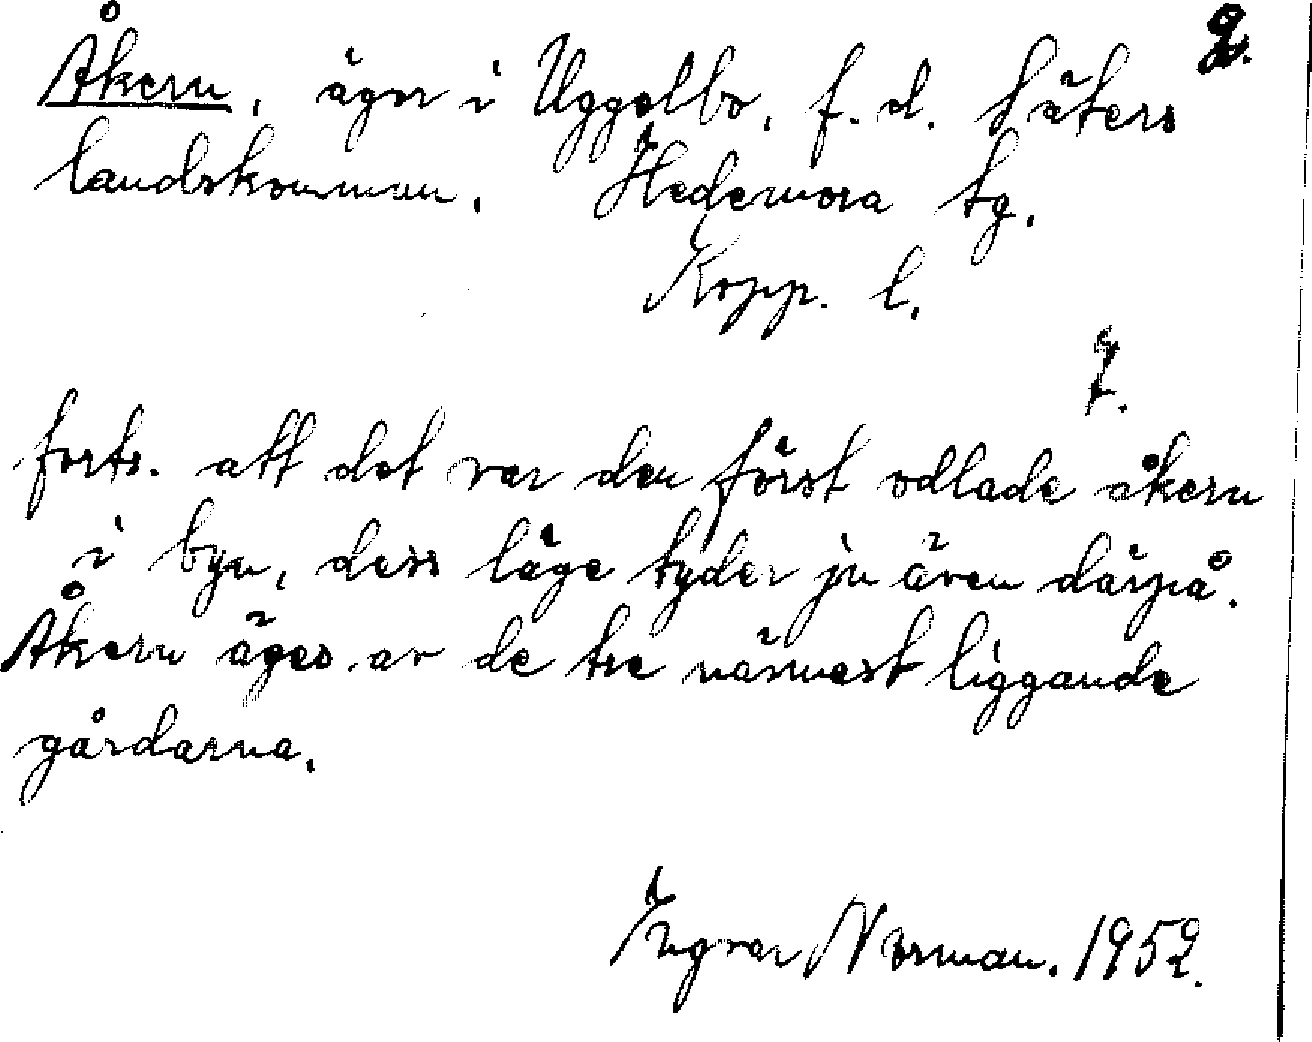 2.
Åkern, ägor i Uggelbo, f. d. Säters
landskommun. Hedemora tg.
Kopp. l.
7.
forts. att det var den först odlade åkern
i byn, dess läge tyder ju även därpå.
Åkern äges av de tre närmast liggande
gårdarna.
Ingvar Norman. 1952.